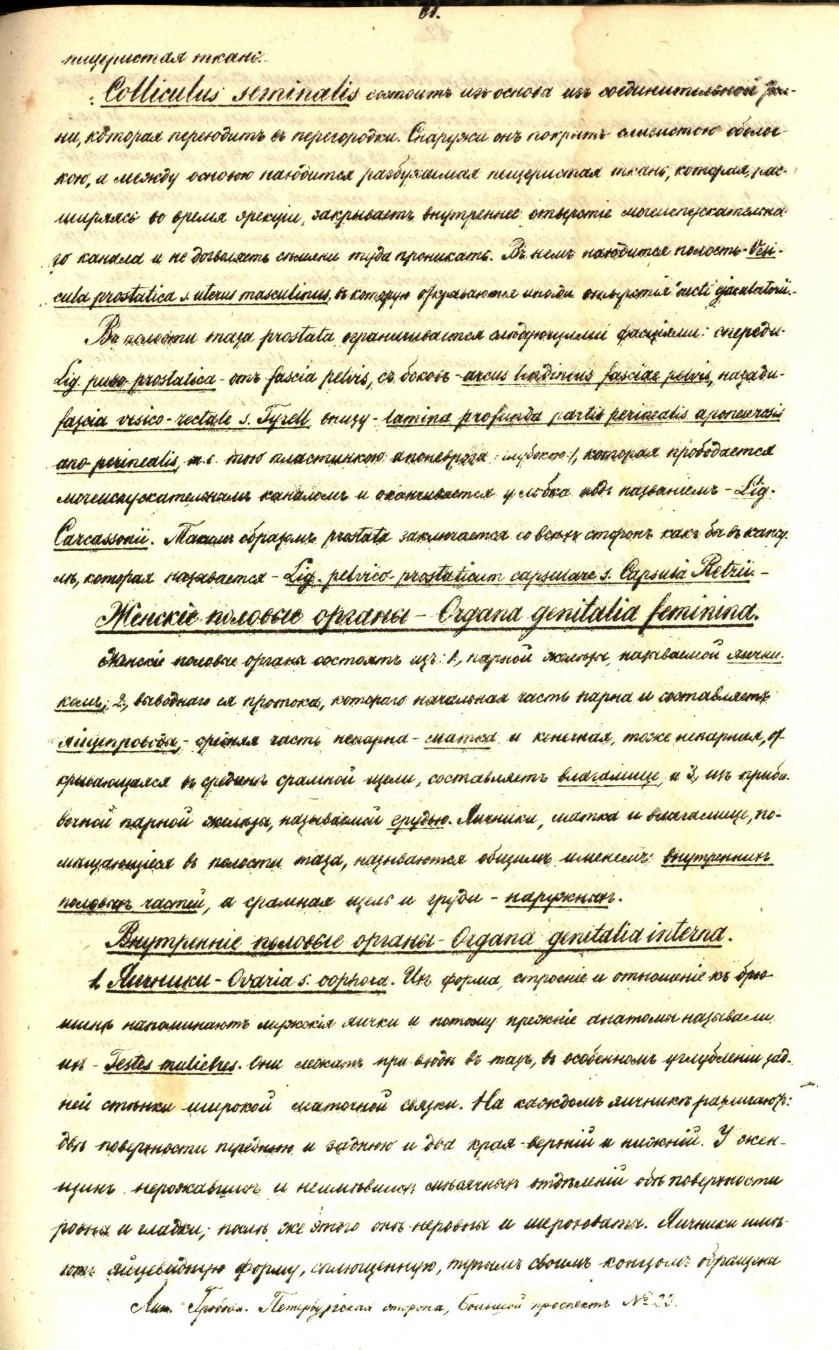 81.
пещеристая ткань.
Colliculus seminalis состоитъ изъ основа изъ соединительной тка-
ни, которая переходитъ въ перегородки. Снаружи онъ покрытъ слизистою оболоч-
кою, а между основою находится разбухаемая пещеристая ткань, которая, рас-
ширяясь во время эрекціи, закрываетъ внутреннее отверстіе мочеиспускательна-
го канала и не дозволяетъ сѣмяни туда проникать. Въ немъ находится полость - Vesi-
cula prostatica s. uterus masculinus, въ которую открываются иногда отверстія ducti ejaculatorii.-
Въ полости таза prostata ограничивается слѣдующими фасціями: спереди-
Lig. pubo-prostatica - отъ fascia pelvis, съ боковъ - arcus tendineus fasciae pelvis, назади-
fascia vesico-rectale s. Tyrell, внизу - lamina profunda partis perinealis aponeurosis
ano-perinealis, т.е. тою пластинкою апоневроза /:глубокою:/, которая прободается
мочеиспускательнымъ каналомъ и оканчивается у лобка подъ названіемъ - Lig.
Carcassonii. Такимъ образомъ prostata заключается со всѣхъ сторонъ какъ бы въ капсу-
лѣ, которая называется - Lig. pelvico-prostaticum capsulare s. Capsula Retzii.-
Женскіе половые органы - Organa genitalia feminina.
Женскіе половые органы состоятъ изъ: 1, парной железы, называемой яични-
комъ; 2, выводнаго ея протока, котораго начальная часть парна и составляетъ
яйцепроводы, - средняя часть непарна - матка и конечная, тоже непарная, от-
крывающаяся въ срединѣ срамной щели, составляетъ влагалище, и 3, изъ приба-
вочной парной железы, называемой грудью. Яичники, матка и влагалище, по-
мѣщающіеся въ полости таза, называются общимъ именемъ: внутреннихъ
половыхъ частей, а срамная щель и груди - наружныхъ.
Внутренніе половые органы - Organa genitalia interna.
1. Яичники - Ovaria s. oophora. Ихъ форма, строеніе и отношеніе къ брю-
шинѣ напоминаютъ мужскія яички и потому прежніе анатомы называли
ихъ - Testes muliebres. Они лежатъ при входѣ въ тазъ, въ особенномъ углубленіи зад-
ней стѣнки широкой маточной связки. На каждомъ яичникѣ различаютъ:
двѣ поверхности переднюю и заднюю и два края - верхній и нижній. У жен-
щинъ нерожавшихъ и неимѣвшихъ мѣсячныхъ отдѣленій обѣ поверхности
ровны и гладки, послѣ же этого онѣ неровны и шероховаты. Яичники имѣ-
ютъ яйцевидную форму, сплющенную, тупымъ своимъ концомъ обращена
Лит. Гробова. Петербургская сторона, Большой проспектъ № 22.